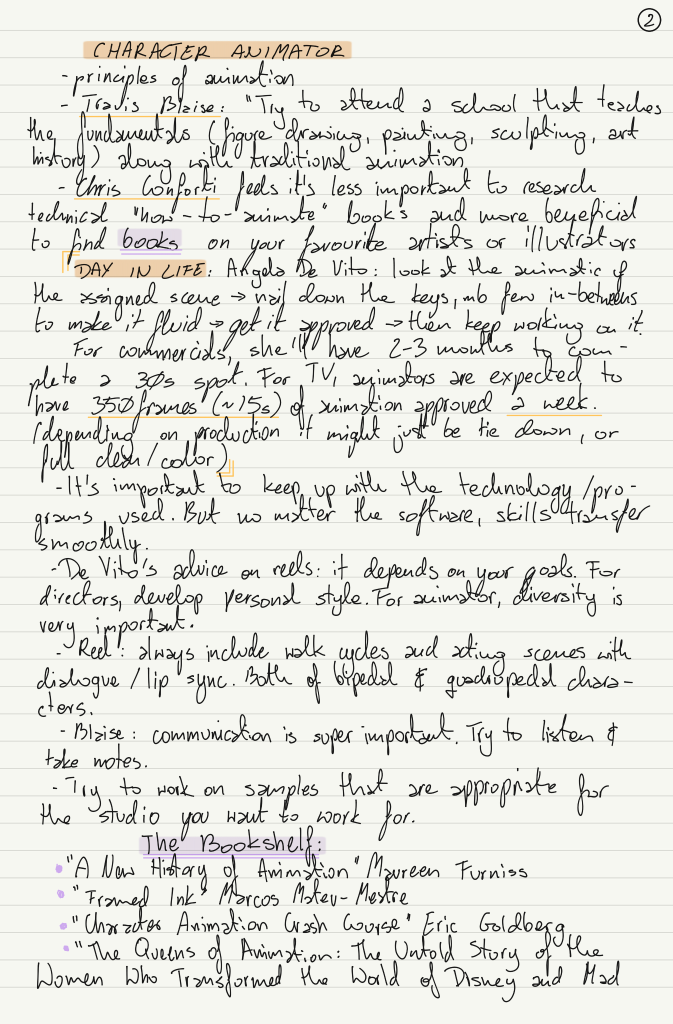 ②
CHARACTER ANIMATOR
- principles of animation
- Travis Blaise: "Try to attend a school that teaches
the fundamentals (figure drawing, painting, sculpting, art
history) along with traditional animation
- Chris Conforti feels it's less important to research
technical "how-to-animate" books and more beneficial
to find books on your favourite artists or illustrators
DAY IN LIFE: Angela De Vito: look at the animatic of
the assigned scene → nail down the keys, mb few in-betweens
to make it fluid → get it approved → then keep working on it.
For commercials, she'll have 2-3 months to com-
plete a 30s spot. For TV, animators are expected to
have 350 frames (~15s) of animation approved a week.
(depending on production it might just be tie down, or
full clean/color)
- It's important to keep up with the technology/pro-
grams used. But no matter the software, skills transfer
smoothly.
- De Vito's advice on reels: it depends on your goals. For
directors, develop personal style. For animator, diversity is
very important.
- Reel: always include walk cycles and acting scenes with
dialogue/lip sync. Both of bipedal & quadrupedal chara-
cters.
- Blaise: communication is super important. Try to listen &
take notes.
- Try to work on samples that are appropriate for
the studio you want to work for.
The Bookshelf:
• "A New History of Animation" Maureen Furniss
• "Framed Ink" Marcos Mateu-Mestre
• "Character Animation Crash Course" Eric Goldberg
• "The Queens of Animation: The Untold Story of the
Women Who Transformed the World of Disney and Mad